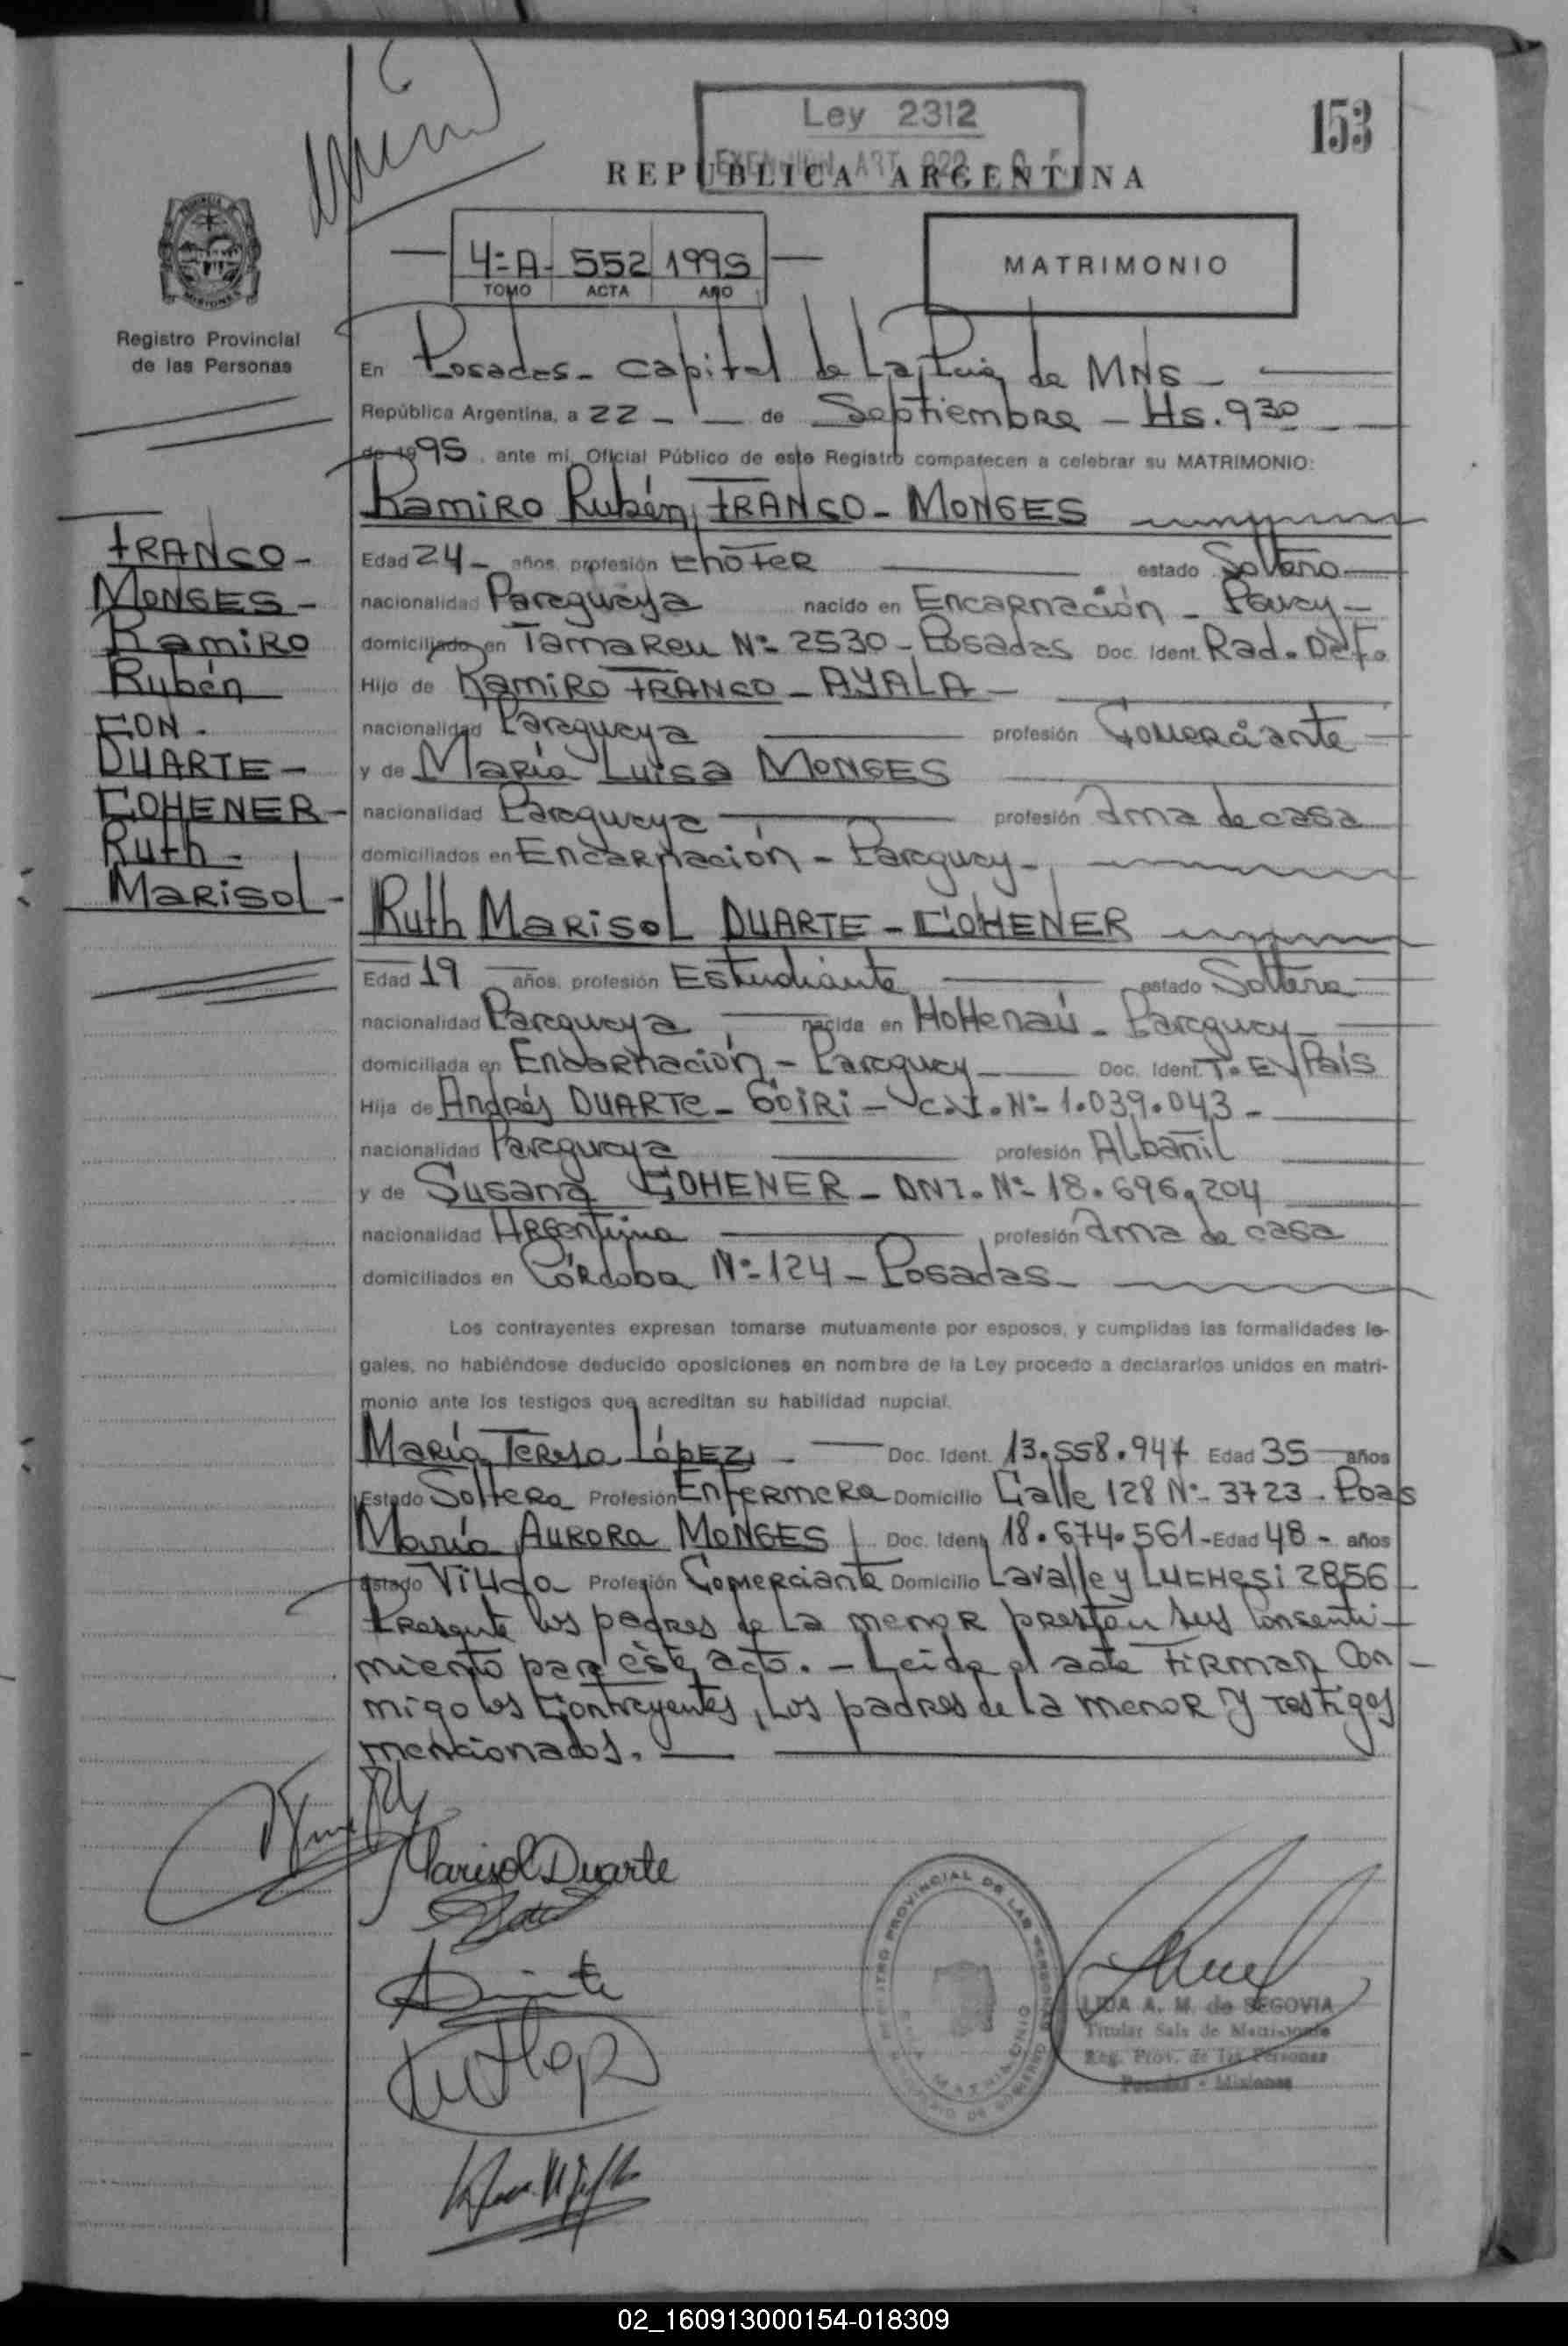 Ley 2312
153
REPUBLICA ARGENTINA
4º A - 552 1995
TOMO ACTA AÑO
MATRIMONIO
Registro Provincial
de las Personas
En Posadas - capital de La Pcia, de MNS -
República Argentina, a 22 - de Septiembre - Hs. 930
de 1995, ante mi, Oficial Público de este Registro comparecen a celebrar su MATRIMONIO:
Ramiro Rubén, FRANCO - MONGES
FRANCO -
MONGES -
Ramiro
Rubén
CON -
DUARTE -
COHENER -
Ruth -
Marisol -
Edad 24 - años, profesión Chófer estado Soltero
nacionalidad Paraguaya nacido en Encarnación - Pguay -
domiciliado en Tamareu Nº 2530 - Posadas Doc. Ident. Rad. Def.
Hijo de Ramiro FRANCO - AYALA -
nacionalidad Paraguaya profesión Comerciante
y de María Luisa MONGES
nacionalidad Paraguaya profesión Ama de casa
domiciliados en Encarnación - Paraguay -
Ruth Marisol DUARTE - COHENER
Edad 19 años, profesión Estudiante estado Soltera
nacionalidad Paraguaya nacida en Hohenaú - Paraguay -
domiciliada en Encarnación - Paraguay - Doc. Ident. T. E/ País
Hija de Andrés DUARTE - GOIRI - C.I. Nº 1.039.043 -
nacionalidad Paraguaya profesión Albañil
y de Susana COHENER - DNI. Nº 18.696.204
nacionalidad Argentina profesión Ama de casa
domiciliados en Córdoba Nº 124 - Posadas -
Los contrayentes expresan tomarse mutuamente por esposos, y cumplidas las formalidades le-
gales, no habiéndose deducido oposiciones en nombre de la Ley procedo a declararlos unidos en matri-
monio ante los testigos que acreditan su habilidad nupcial.
María Teresa López - Doc. Ident. 13.558.947 Edad 35 años
Estado Soltera Profesión Enfermera Domicilio Calle 128 Nº 3723 - Pdas
María AURORA MONGES Doc. Ident. 18.674.561 - Edad 48 - años
Estado Viuda Profesión Comerciante Domicilio Lavalle y Luchesi 2856
Presente los padres de la menor prestan sus consenti-
miento para éste acto. - Leída el acta Firman Con-
migo los Contrayentes, los padres de la menor y Testigos
mencionados.
Marisol Duarte
LIDA A. M. de SEGOVIA
Titular Sala de Matrimonio
Reg. Prov. de las Personas
Posadas - Misiones
02_160913000154-018309